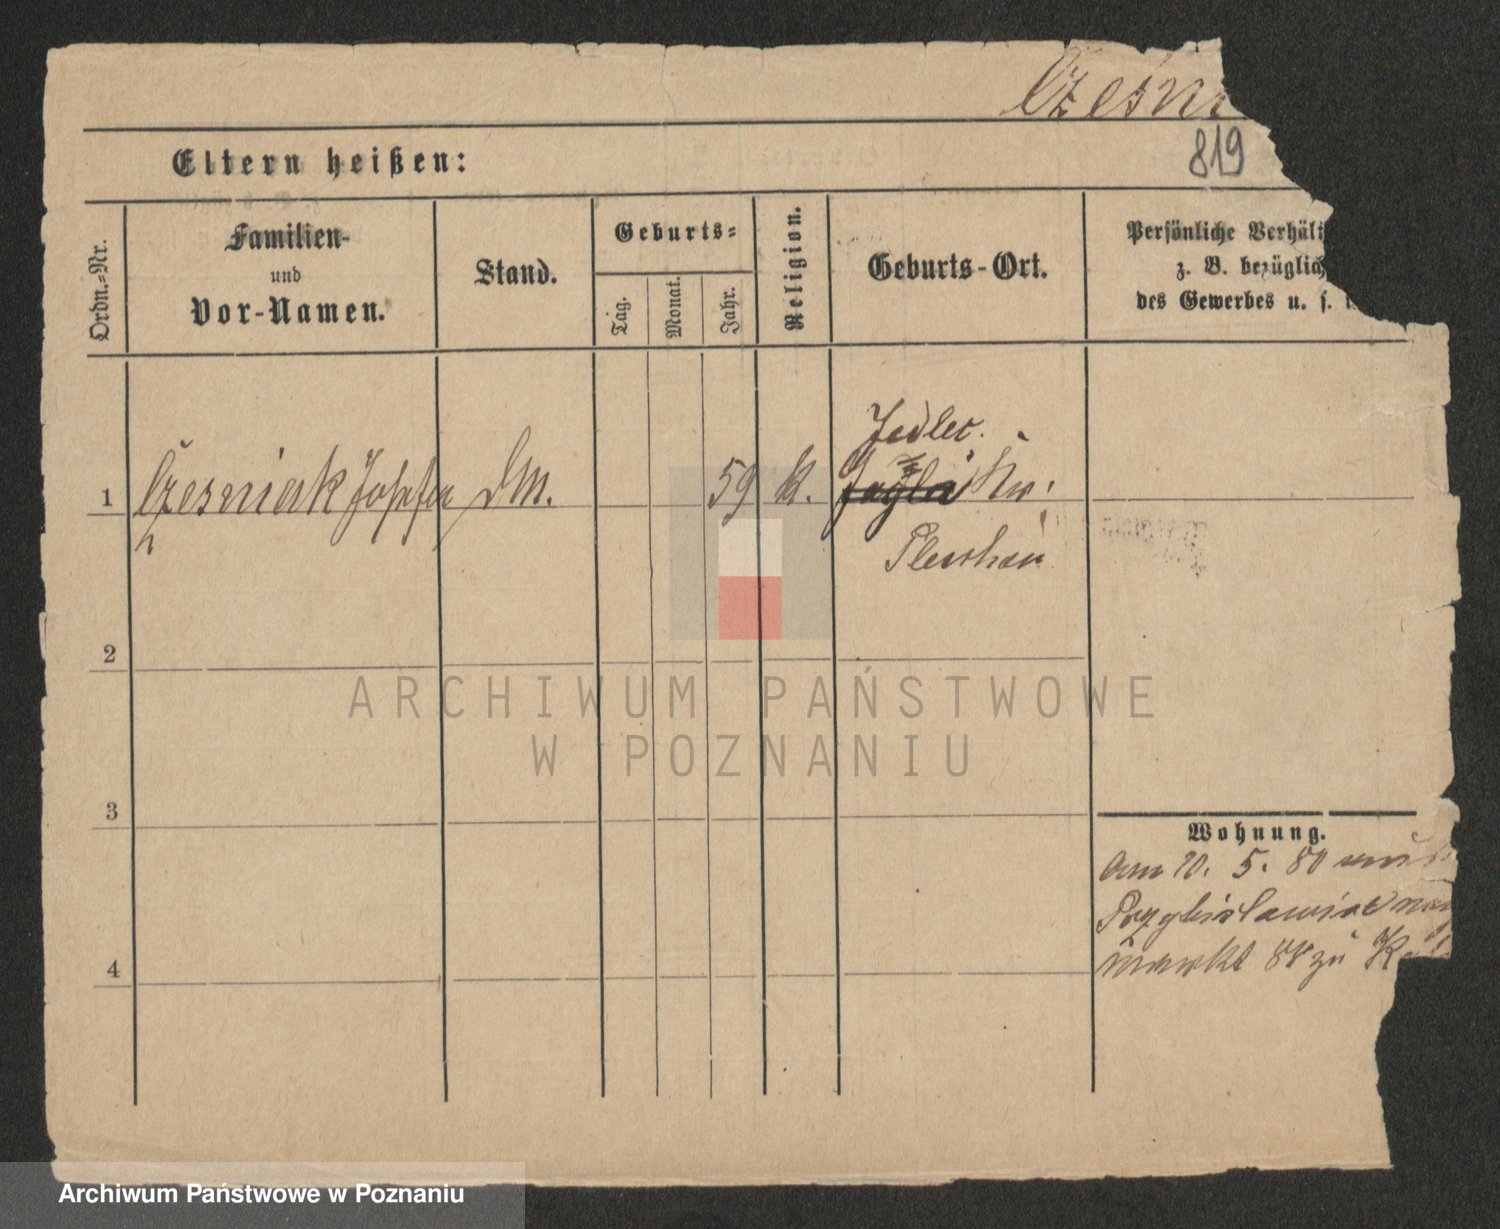 Czesni
819
Eltern heißen:
Ordn.-Nr.
Familien-
und
Vor-Namen.
Stand.
Geburts-
Tag.
Monat.
Jahr.
Religion.
Geburts-Ort.
Persönliche Verhält
z. B. bezüglich
des Gewerbes u. s.
Jedlec.
1 Czesniak Josefa DM. 59 K. Kr.
Pleschen
2
3
4
Wohnung.
Am 20. 5. 80
Przybislawice
markt 88 zu
ARCHIWUM PAŃSTWOWE
W POZNANIU
Archiwum Państwowe w Poznaniu